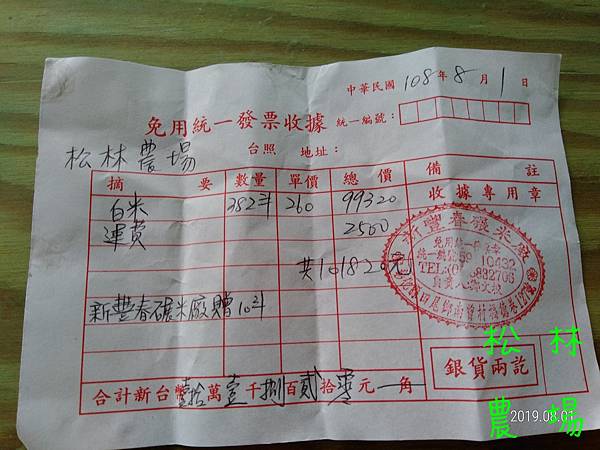 中華民國108年8月1日
免用統一發票收據 統一編號：
松林農場 台照 地址：
摘要 數量 單價 總價 備註
白米 382斗 260 99320 收據專用章
運費 2500
共101820元
新豐春碾米廠贈10斗
新豐春碾米廠
免用統一發票
TEL:
銀貨兩訖
合計新台幣壹拾萬壹千捌百貳拾零元一角
松林
農場
2019.08.01